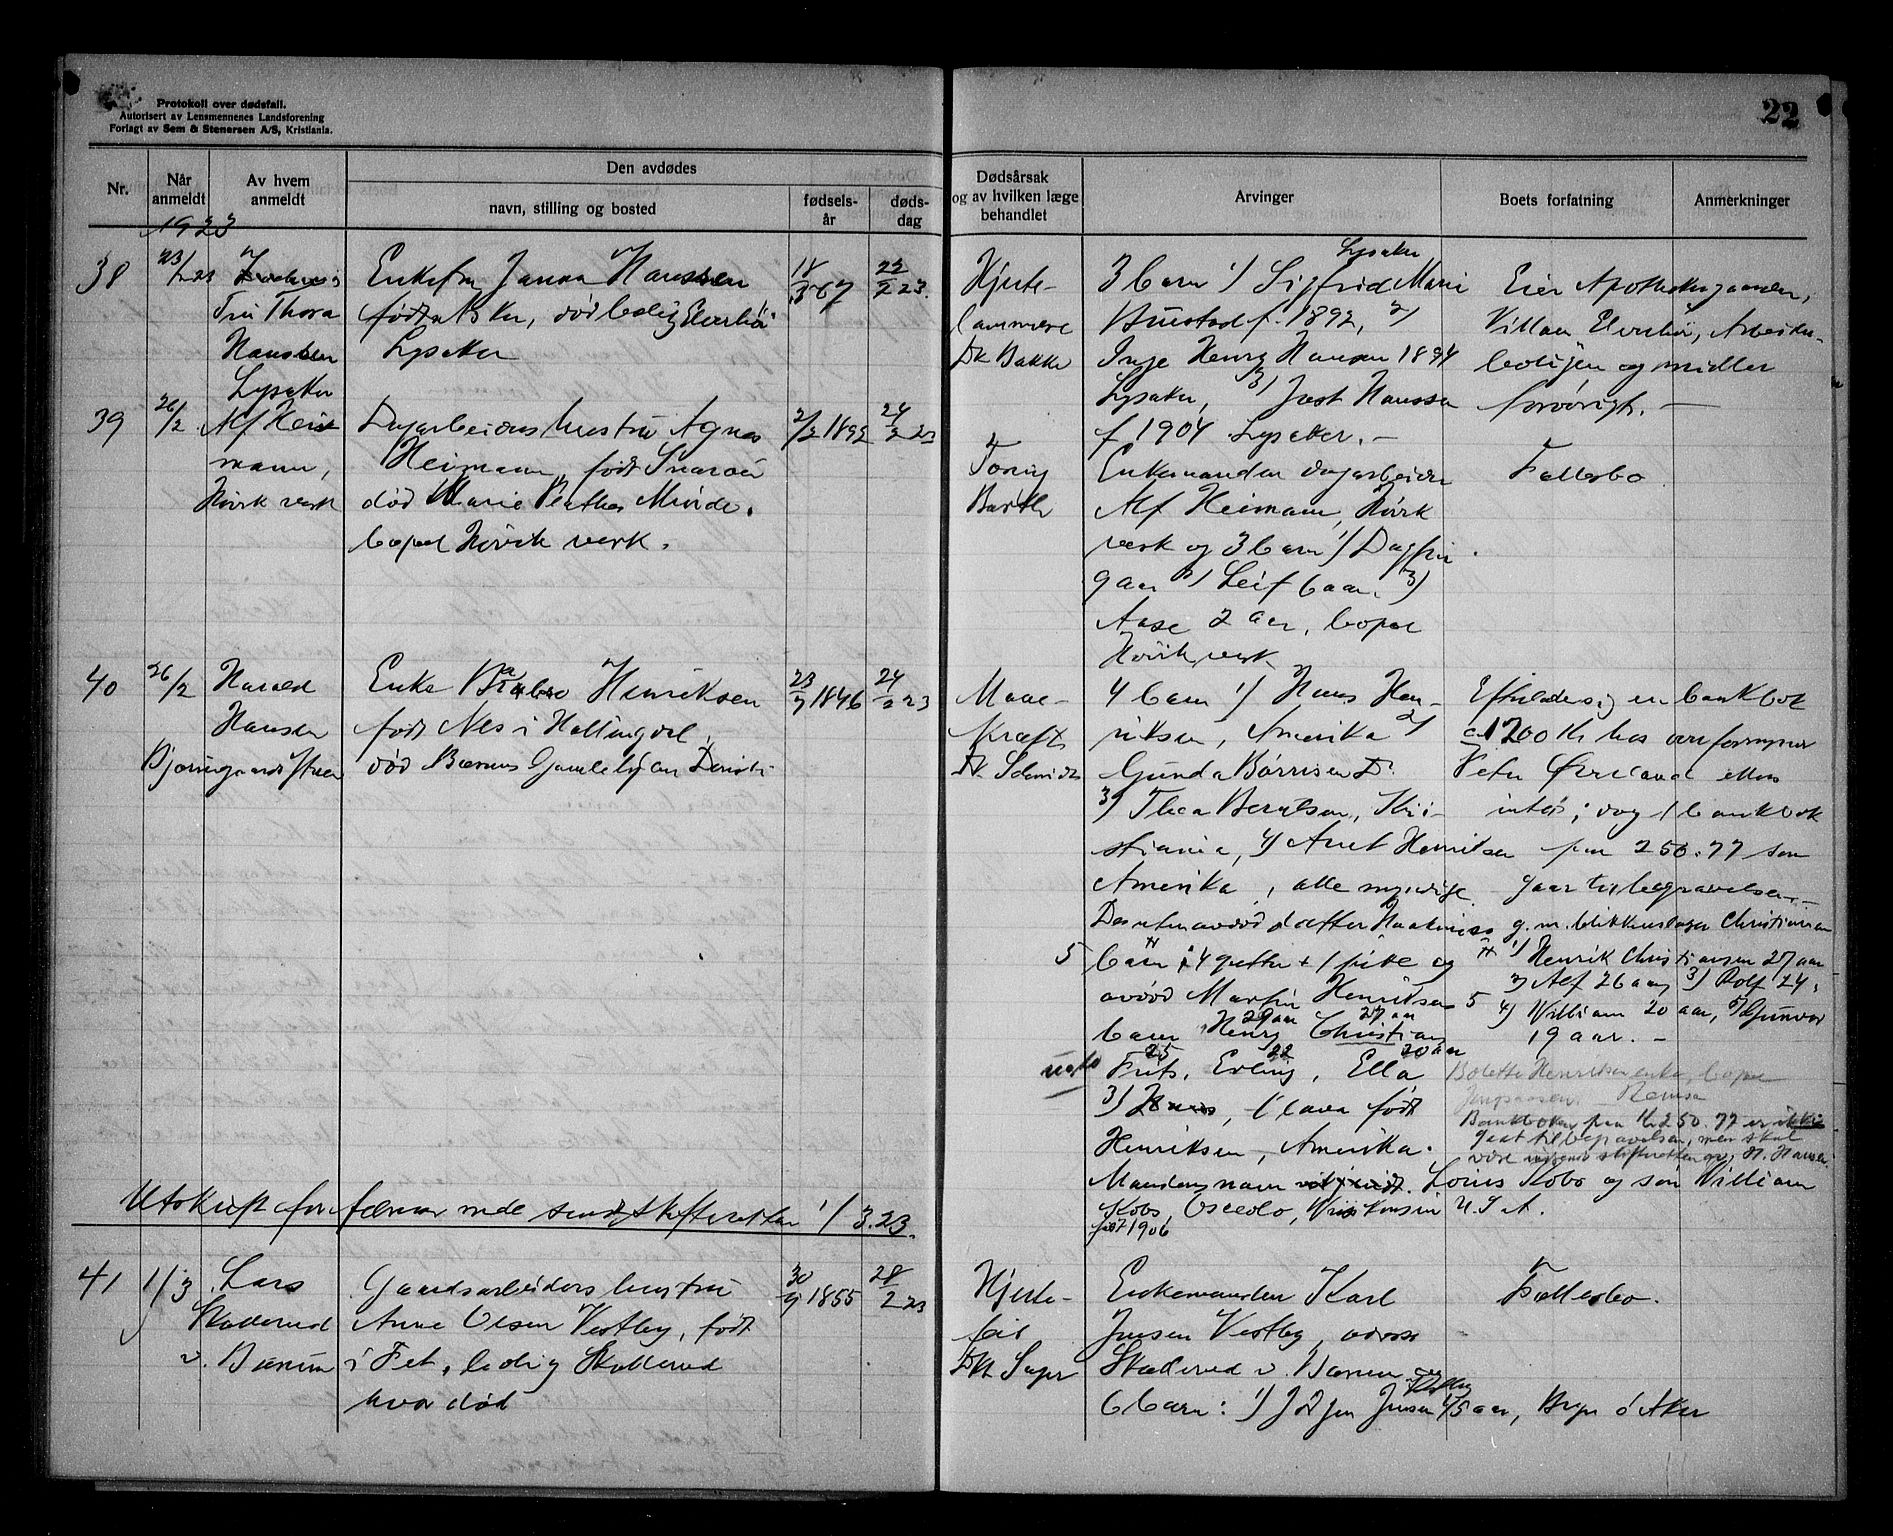 22
Protokoll over dødsfall.
Autorisert av Lensmennenes Landsforening
Forlagt av Sem & Stenersen A/S, Kristiania.
Nr.
Når anmeldt
Av hvem anmeldt
Den avdødes
navn, stilling og bosted
fødsels-år
døds-dag
Dødsårsak og av hvilken læge behandlet
Arvinger
Boets forfatning
Anmerkninger
1923
38
23/2 23
Frk Thora
Hanssen
Lysaker
Enkefru Janna Hanssen
født Asker, død bolig Elvehøi
Lysaker
18/3 67
22/2 23.
Hjerte-
lammelse
Dr Bakke
Lysaker
3 barn 1) Sigfrid Marie
Bustad f. 1892, 2)
Inge Henry Hansen 1894
Lysaker, 3) Jost Hanssen
f. 1904 Lysaker. -
Eier Apothekergaarden,
Villaen Elvehøi, Arbeider-
boligen og midler
forøvrigt. -
39
26/2
Alf Hei-
mann,
Høvik verk
Dagarbeiders hustru Agnes
Heimann, født Snarøen
død Marie Plathes Minde.
bopæl Høvik verk.
2/2 1892
24/2 23
Barth
Enkemanden dagarbeider
Alf Heimann, Høvik
verk og 3 barn 1) Dagfin
9 aar 2) Leif 6 aar. 3)
Aase 2 aar, bopæl
Høvik verk
Fællesbo
40
26/2
Harald
Hansen
Enke Henriksen
født Nes i Hallingdal,
død Bærums Gamlehjem
23/7 1846
24/2 23
Mave-
Kræft
4 barn 1) Hans Hen-
riksen, Amerika 2)
Gunda Børresen D:
3) Thea Berntsen, Kri-
stiania, 4) Anet Henriksen
Amerika, alle myndige.
5 barn 4 gutter + 1 pike og
avdød Martin Henriksen 5
barn Henry 29 aar Christian 27 aar
Frits, 25 Erling, 22 Ella 20 aar
3) Hans, Clara født
Henriksen, Amerika.
Mandens navn Louis Kobs og søn William
Kobs, Osceola, Wisconsin U.S.A.
født 1906
Efterlader sig en bankbok
ca 1200 Kr hos overformynder
Peter Øverland ellers
intet; dog 1 bankbok
paa 250.77 som
gaar til begravelsen. -
g.m. blikkenslager Christiansen
1) Henrik Christiansen 27 aar
2) Alf 26 aar, 3) Rolf 24,
4) William 20 aar, 5) Gunvor
19 aar. -
Bolette Henriksen enke, bopæl
Bankboken paa Kr 250.77 er ikke
gaat til begravelsen, men skal
være
Utskrift for februar md. sendt skifteretten 1/3.23.
41
1/3
Lars
Skallerud
v. Bærum
Gaardsarbeiders hustru
Anne Olsen Vestby, født
i Fet, bolig Skallerud
hvor død
30/9 1855
28/2 23
Hjerte-
feil
Enkemanden Karl
Jensen Vestby, adresse
Skallerud v. Bærum og
6 barn: 1) Jørgen Jensen Vestby 45 aar, Bryn Ø Aker
Fællesbo.